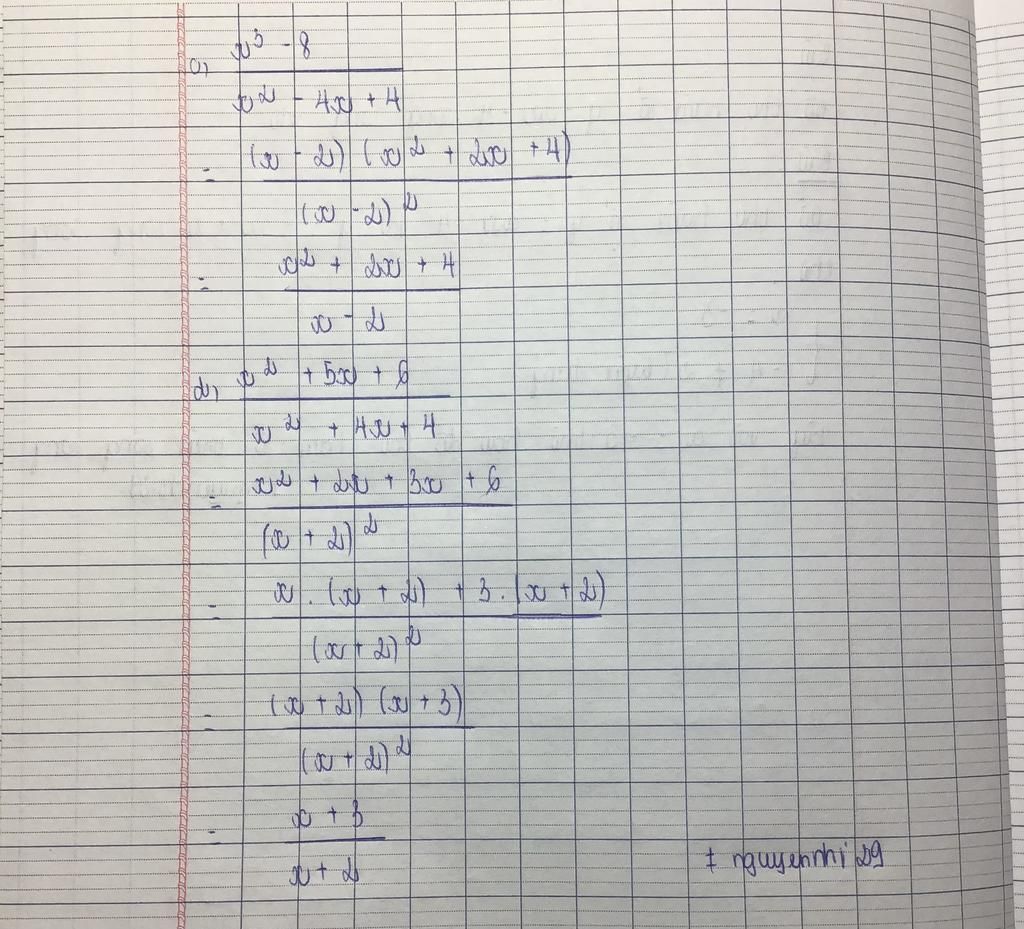 c, x³ - 8
x² - 4x + 4
= (x - 2) (x² + 2x + 4)
(x - 2)²
= x² + 2x + 4
x - 2
d, x² + 5x + 6
x² + 4x + 4
= x² + 2x + 3x + 6
(x + 2)²
= x . (x + 2) + 3 . (x + 2)
(x + 2)²
= (x + 2) (x + 3)
(x + 2)²
= x + 3
x + 2
# nguyennhi 29